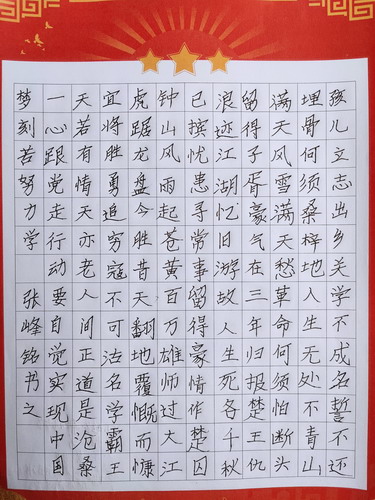 孩儿立志出乡关学不成名誓不还
埋骨何须桑梓地人生无处不青山
满天风雪满天愁革命何须怕断头
留得子胥豪气在三年归报楚王仇
浪迹江湖忆旧游故人生死各千秋
已摈忧患寻常事留得豪情作楚囚
钟山风雨起苍黄百万雄师过大江
虎踞龙盘今胜昔天翻地覆慨而慷
宜将胜勇追穷寇不可沽名学霸王
天若有情天亦老人间正道是沧桑
一心跟党走行动要自觉实现中国
梦刻苦努力学 张峰铭书之